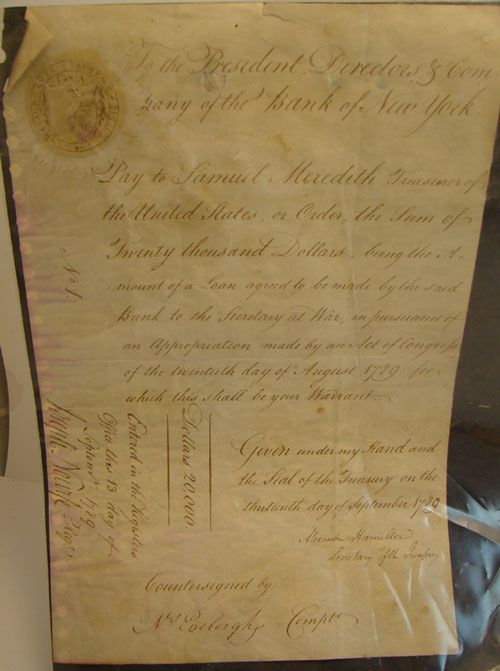 To the President, Directors, & Com
pany of the Bank of New York.
Pay to Samuel Meredith Treasurer of
the United States, or Order, the Sum of
Twenty thousand Dollars, being the A-
mount of a Loan agreed to be made by the said
Bank to the Secretary at War, in pursuance of
an Appropriation made by an Act of Congress
of the twentieth day of August 1789 for
which this shall be your Warrant
Given under my Hand and
the Seal of the Treasury on the
thirteenth day of September 1789
Alexander Hamilton
Secretary of the Treasury
Dollars 20,000.
Entered in the Registers
Office this 13 day of
Septemr 1789.
Joseph Nourse Regr
No 1.
Countersigned by
Ns Eveleigh, Comptr